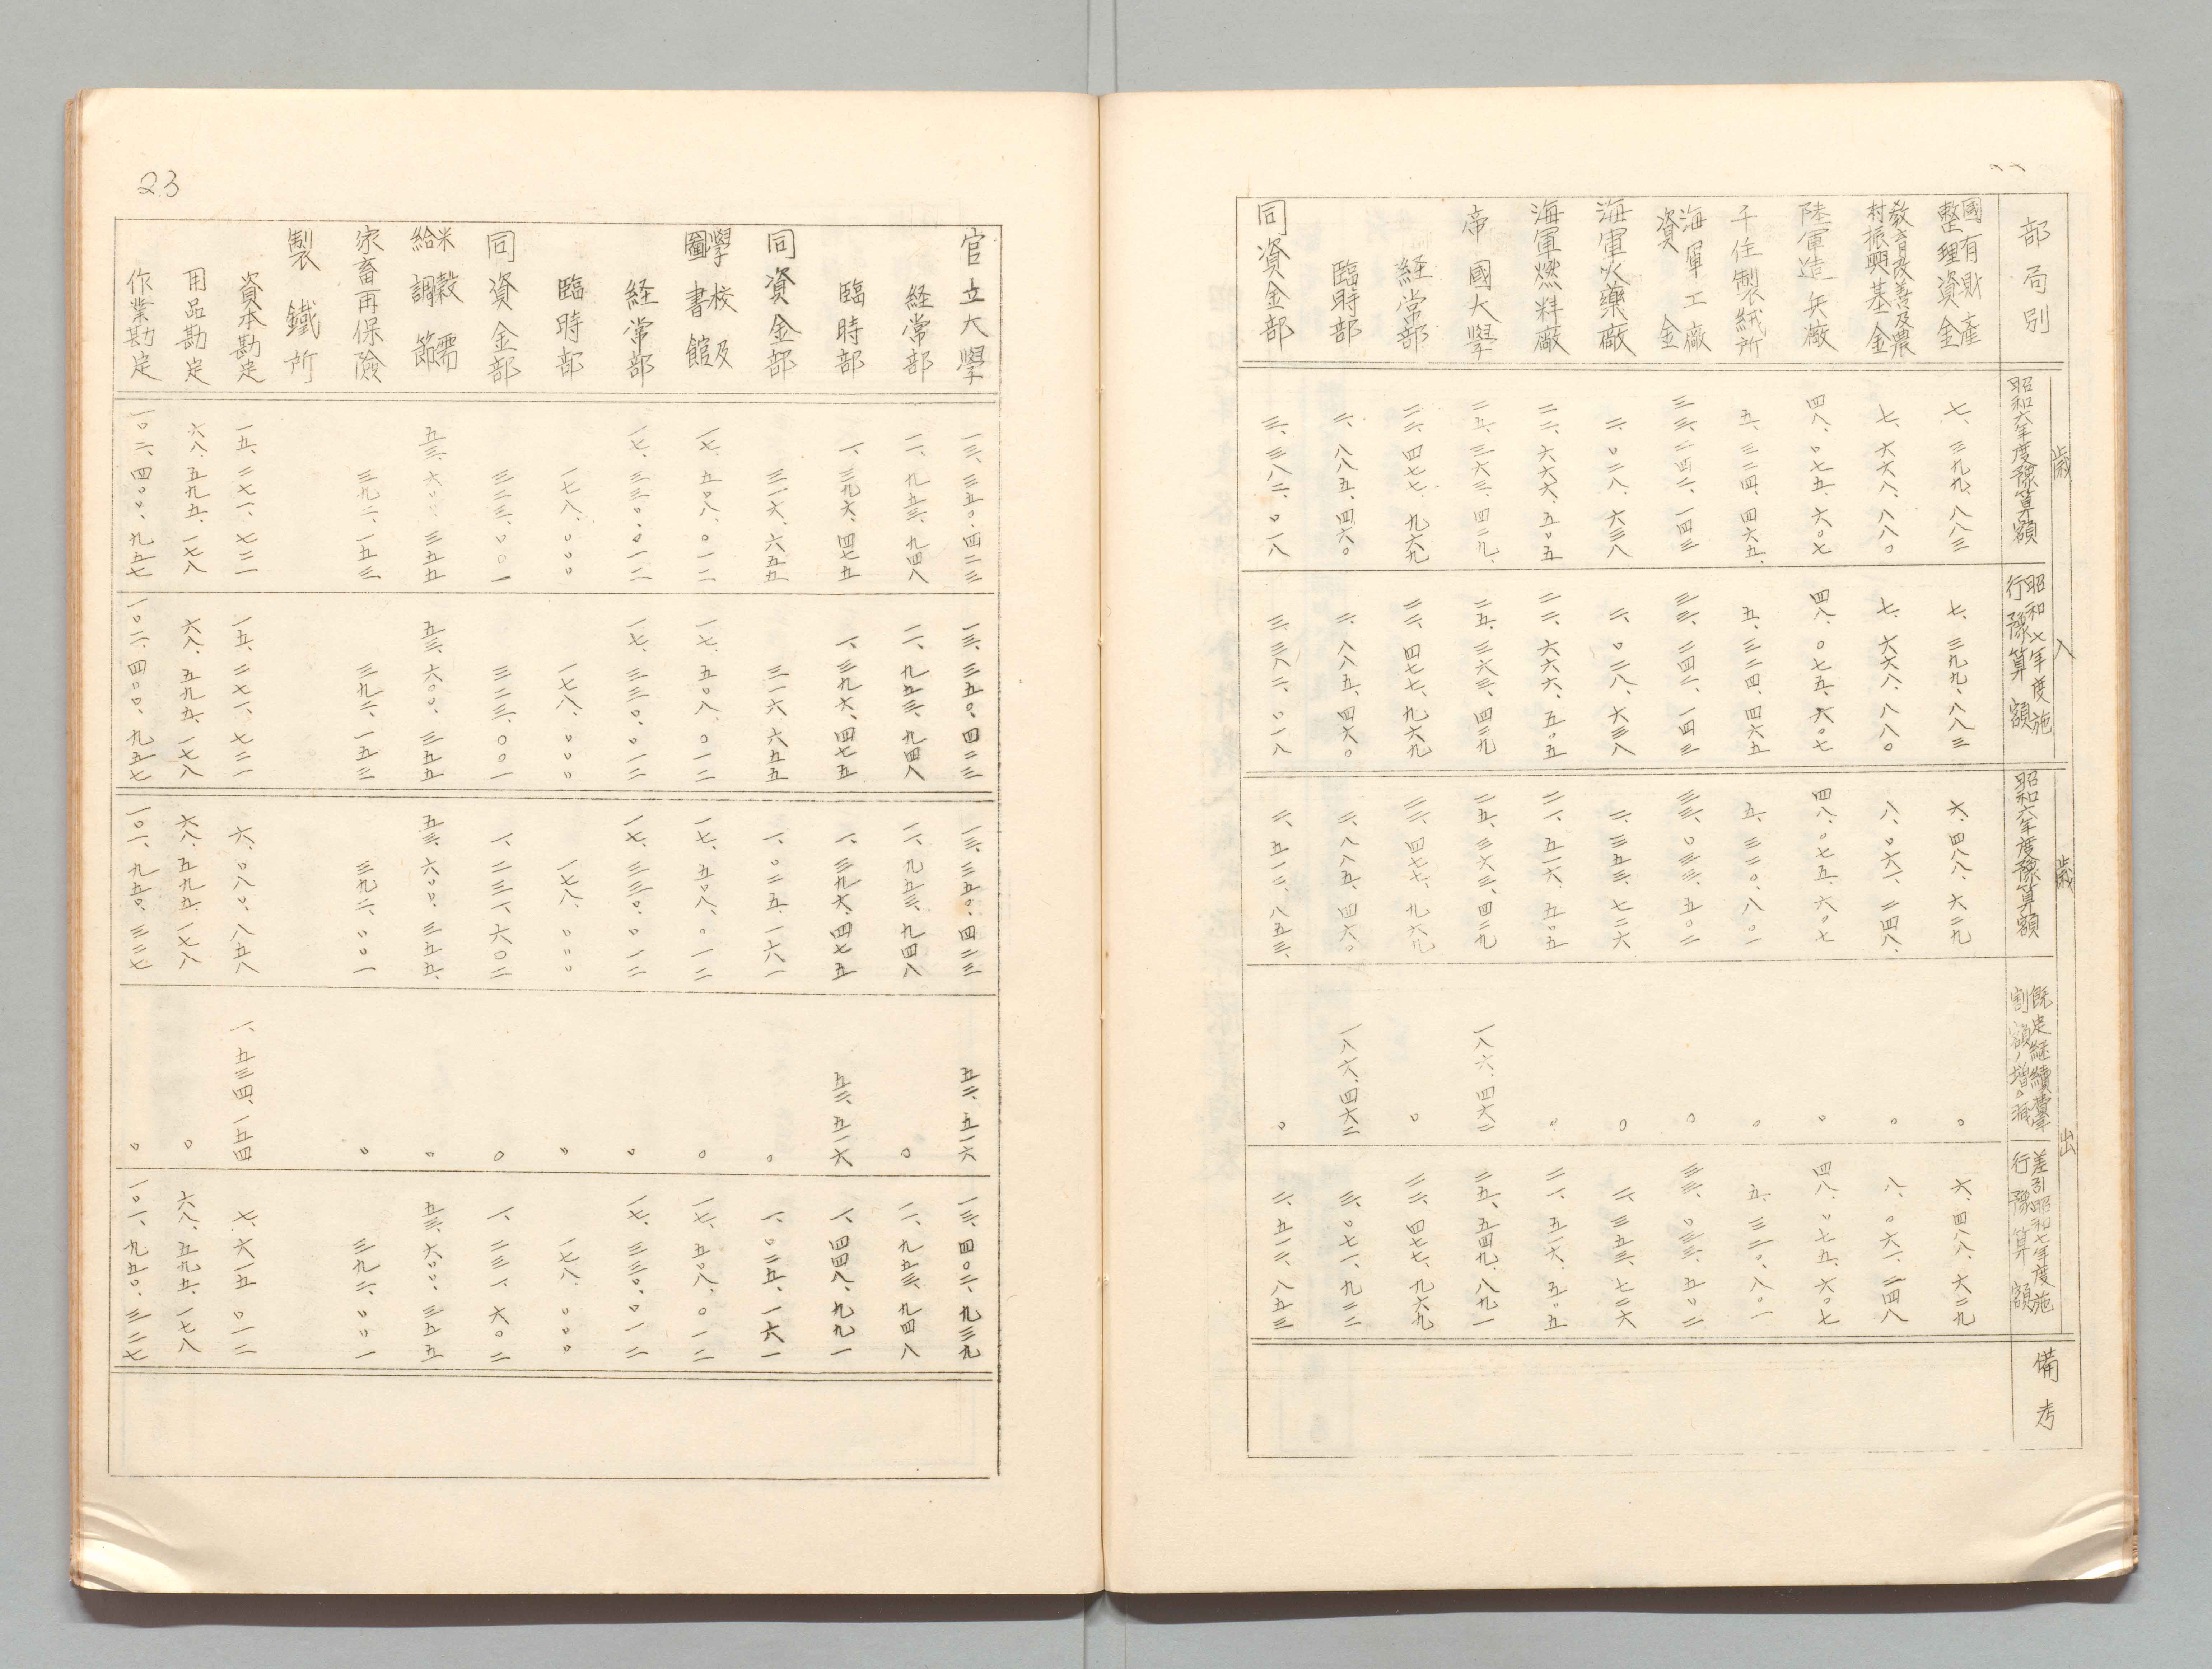 部局別
歳入
昭和六年度豫算額
昭和七年度施行豫算額
歳出
昭和六年度豫算額
既定継續費年割額ノ増減
差引昭和七年度施行豫算額
備考
國有財産整理資金
七、三九九、八八三
七、三九九、八八三
六、四八八、六二九
〇
六、四八八、六二九
教育改善及農村振興基金
七、六六八、八八〇
七、六六八、八八〇
八、〇六一、二四八
〇
八、〇六一、二四八
陸軍造兵廠
四八、〇七五、六〇七
四八、〇七五、六〇七
四八、〇七五、六〇七
〇
四八、〇七五、六〇七
千住製絨所
五、三二四、四六五
五、三二四、四六五
五、三二〇、八〇一
〇
五、三二〇、八〇一
海軍工廠資金
三三、二四二、一四三
三三、二四二、一四三
三三、〇三三、五〇二
〇
三三、〇三三、五〇二
海軍火藥廠
二、〇二八、六三八
二、〇二八、六三八
二、三五三、七二六
〇
二、三五三、七二六
海軍燃料廠
二二、六六六、五〇五
二二、六六六、五〇五
二一、五一六、五〇五
〇
二一、五一六、五〇五
帝國大學
二五、三六三、四二九
二五、三六三、四二九
二五、三六三、四二九
一八六、四六二
二五、五四九、八九一
経常部
二二、四七七、九六九
二二、四七七、九六九
二二、四七七、九六九
〇
二二、四七七、九六九
臨時部
二、八八五、四六〇
二、八八五、四六〇
二、八八五、四六〇
一八六、四六二
三、〇七一、九二二
同資金部
三、三八二、〇一八
三、三八二、〇一八
二、五一二、八五三
〇
二、五一二、八五三
官立大學
一三、三五〇、四二三
一三、三五〇、四二三
一三、三五〇、四二三
五二、五一六
一三、四〇二、九三九
経常部
一一、九五三、九四八
一一、九五三、九四八
一一、九五三、九四八
〇
一一、九五三、九四八
臨時部
一、三九六、四七五
一、三九六、四七五
一、三九六、四七五
五二、五一六
一、四四八、九九一
同資金部
三一六、六五五
三一六、六五五
一、〇二五、一六一
〇
一、〇二五、一六一
學校及圖書館
一七、五〇八、〇一二
一七、五〇八、〇一二
一七、五〇八、〇一二
〇
一七、五〇八、〇一二
経常部
一七、三三〇、〇一二
一七、三三〇、〇一二
一七、三三〇、〇一二
〇
一七、三三〇、〇一二
臨時部
一七八、〇〇〇
一七八、〇〇〇
一七八、〇〇〇
〇
一七八、〇〇〇
同資金部
三二三、〇〇一
三二三、〇〇一
一、二三一、六〇二
〇
一、二三一、六〇二
米穀需給調節
五三、六〇〇、三五五
五三、六〇〇、三五五
五三、六〇〇、三五五
〇
五三、六〇〇、三五五
家畜再保險
三九二、一五三
三九二、一五三
三九二、〇〇一
〇
三九二、〇〇一
製鐵所
資本勘定
一五、二七一、七二一
一五、二七一、七二一
六、〇八〇、八五八
一、五三四、一五四
七、六一五、〇一二
用品勘定
六八、五九五、一七八
六八、五九五、一七八
六八、五九五、一七八
〇
六八、五九五、一七八
作業勘定
一〇二、四〇〇、九五七
一〇二、四〇〇、九五七
一〇一、九五〇、三二七
〇
一〇一、九五〇、三二七
23